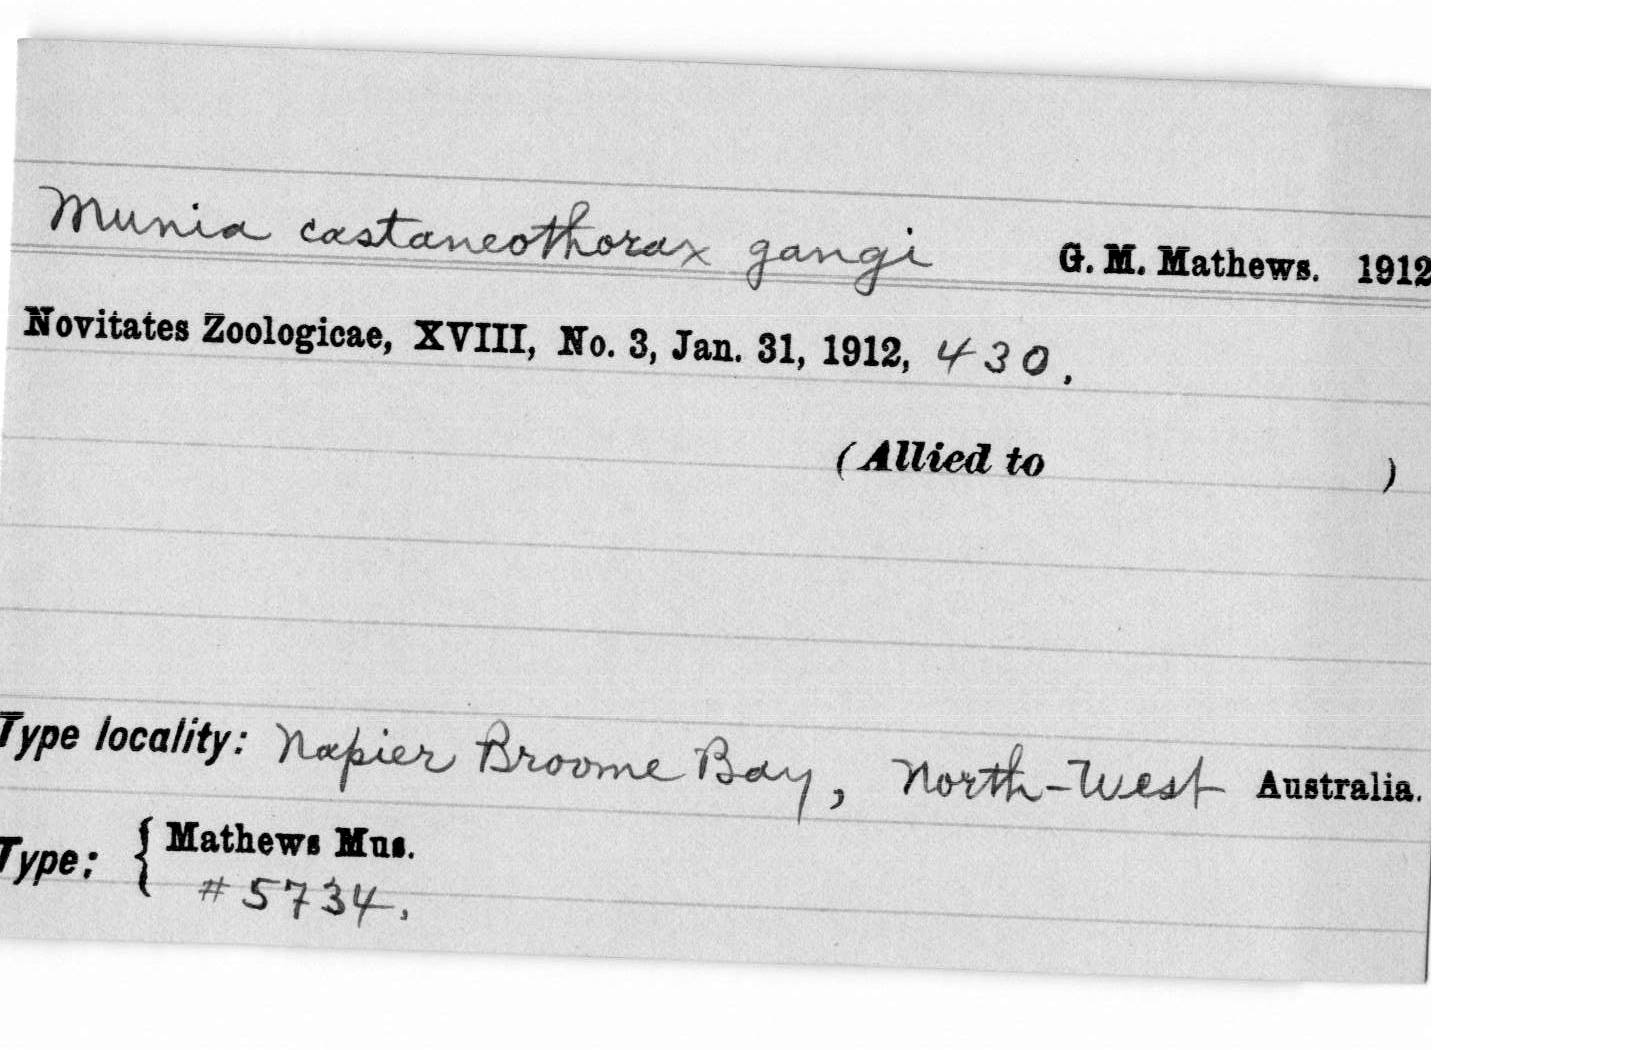 Munia castaneothorax gangi G. M. Mathews. 1912
Novitates Zoologicae, XVIII, No. 3, Jan. 31, 1912, 430.
(Allied to )
Type locality: Napier Broome Bay, North-West Australia.
Type: { Mathews Mus.
#5734.